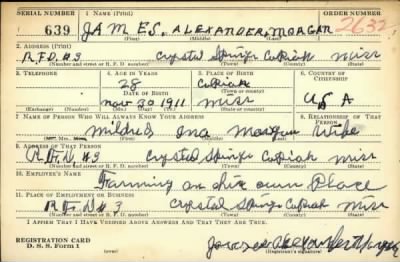 SERIAL NUMBER 1. NAME (Print) ORDER NUMBER
639 JAMES. ALEXANDER. MORGAN 2632
(First) (Middle) (Last)
2. ADDRESS (Print)
R.F.D. #3 Crystal Springs Copiah Miss
(Number and street or R. F. D. number) (Town) (County) (State)
3. TELEPHONE 4. AGE IN YEARS 5. PLACE OF BIRTH 6. COUNTRY OF CITIZENSHIP
28 Copiah
DATE OF BIRTH (Town or county)
Nov 30 1911 Miss U S A
(Exchange) (Number) (Mo.) (Day) (Yr.) (State or country)
7. NAME OF PERSON WHO WILL ALWAYS KNOW YOUR ADDRESS 8. RELATIONSHIP OF THAT PERSON
Mildred Ina Morgan Wife
(Mr., Mrs., Miss) (First) (Middle) (Last)
9. ADDRESS OF THAT PERSON
R. F. D #3 Crystal Springs Copiah Miss
(Number and street or R. F. D. number) (Town) (County) (State)
10. EMPLOYER'S NAME
Farming on his own Place
11. PLACE OF EMPLOYMENT OR BUSINESS
R F D #3 Crystal Springs Copiah Miss
(Number and street or R. F. D. number) (Town) (County) (State)
I AFFIRM THAT I HAVE VERIFIED ABOVE ANSWERS AND THAT THEY ARE TRUE.
REGISTRATION CARD
D. S. S. Form 1 James Alexander Morgan
(Registrant's signature)